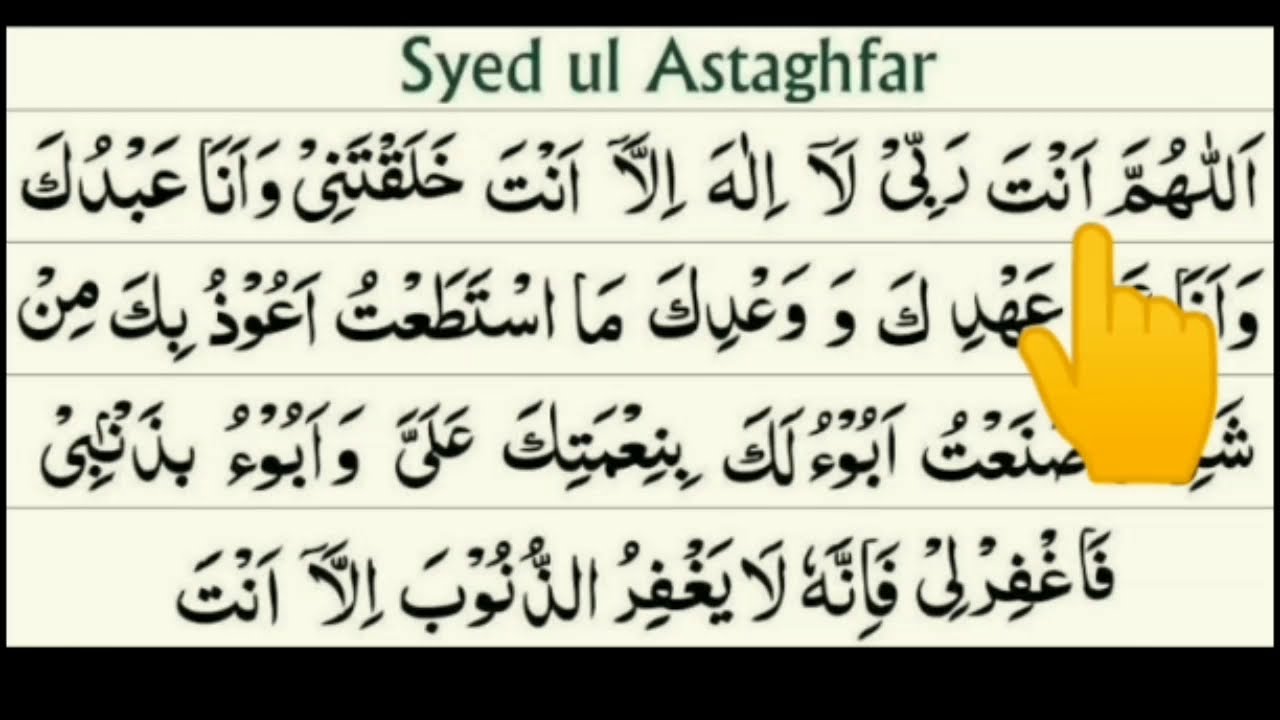 Syed ul Astaghfar
اَللّٰهُمَّ اَنْتَ رَبِّىْ لَآ اِلٰهَ اِلَّآ اَنْتَ خَلَقْتَنِىْ وَاَنَا عَبْدُكَ
وَاَنَا عَهْدِ كَ وَ وَعْدِكَ مَا اسْتَطَعْتُ اَعُوْذُ بِكَ مِنْ
صَنَعْتُ اَبُوْءُ لَكَ بِنِعْمَتِكَ عَلَىَّ وَاَبُوْءُ بِذَنْۢبِىْ
فَاغْفِرْلِىْ فَاِنَّهٗ لَا يَغْفِرُ الذُّنُوْبَ اِلَّآ اَنْتَ